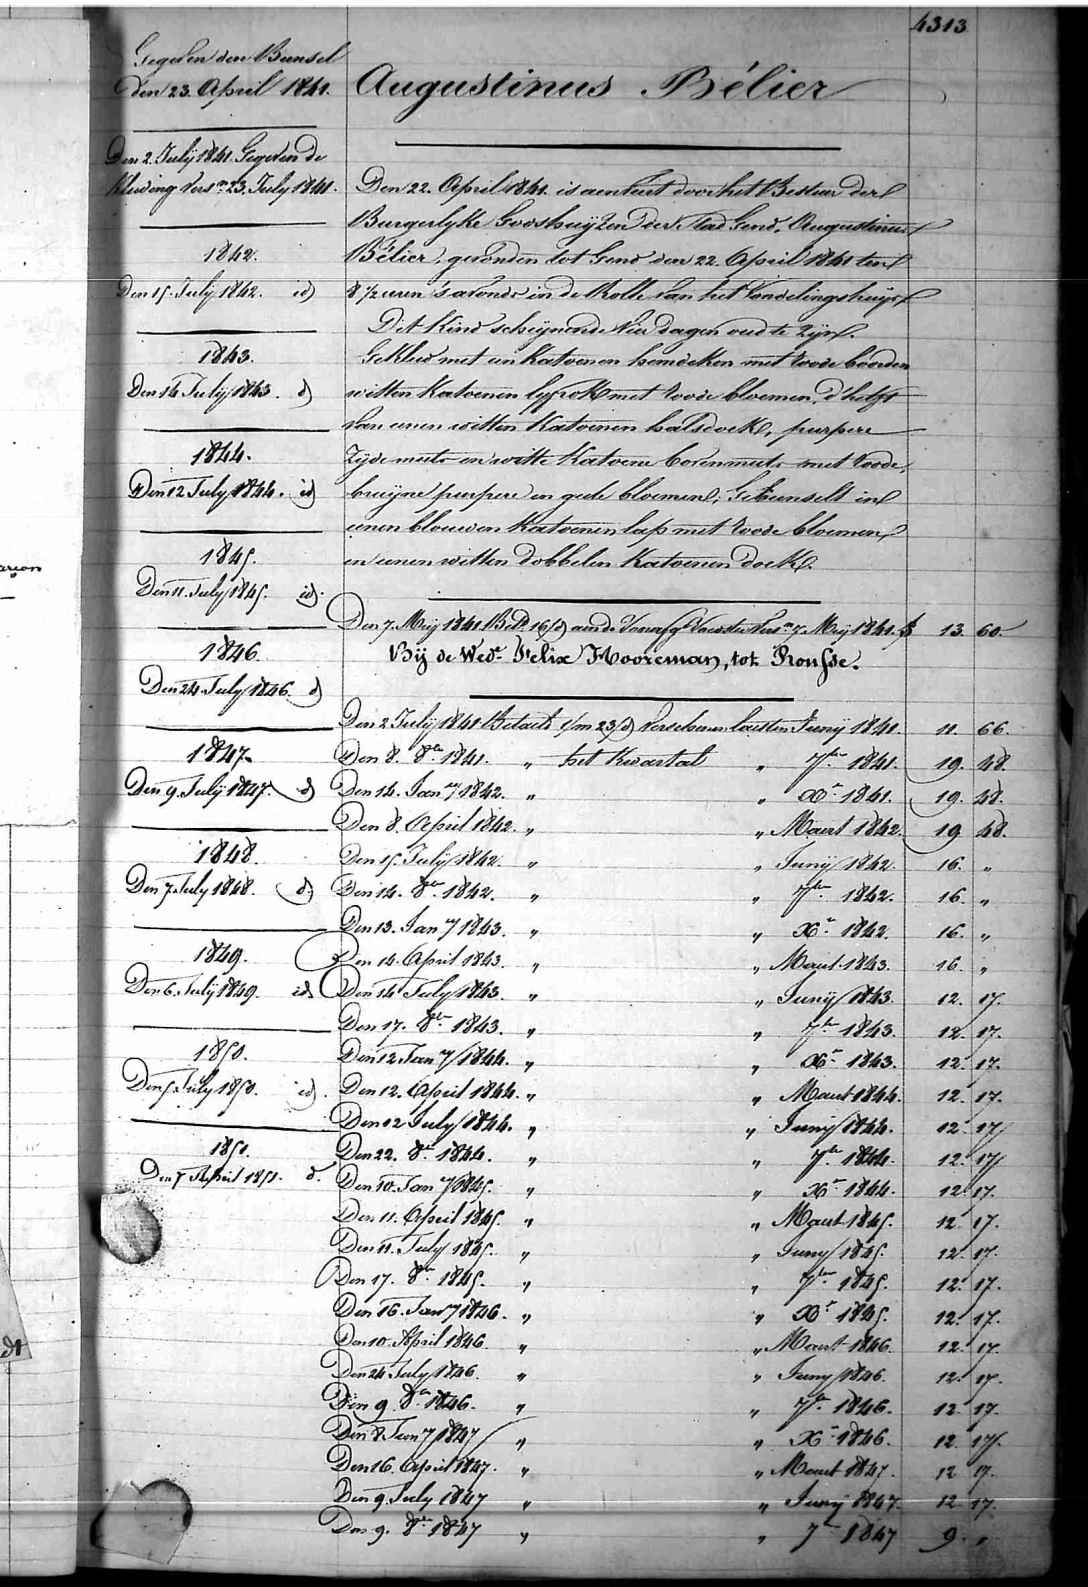 4313
Gegeven den Bunsel
den 23. April 1841.
Augustinus Bélier
Den 2. Julÿ 1841 Gegeven de
kleeding Vers.n 23. July 1841.
Den 22. April 1841. is aenveert door het Bestuer der
Burgerlyke Godshuyzen der Stad Gend, Augustinus
1842.
Bélier, gevonden tot Gend den 22. April 1841 ten
Den 15. Julÿ 1842. id
8 1/2 uren 's avonds in de Rolle van het Vondelingshuys.
Dit Kind scheynende vier dagen oud te zyn.
1843.
Gekleed met een Katoenen hemdeken met roode boorden
Den 14 July 1843. d
witten Katoenen lyfrok met roode bloemen, d'helft
van eenen witten Katoenen halsdoek, purpere
1844.
Zyde muts en witte Katoene bovenmuts met roode,
Den 12 July 1844. id
bruyne purpere en gele bloemen; Gebunselt in
eenen blouwen Katoenen lap met roode bloemen,
1845.
en eenen witten dobbelen Katoenen doek.
Den 11. July 1845. id.
Den 7. Mey 1841 Bet. 16/d aen de Voedster Vers.n 7. Mey 1841. 13. 60.
1846.
Bÿ de Wed.e Felix Hooreman, tot Ronsse.
Den 24 July 1846. d
Den 2 July 1841 Betaelt t/m 23/d verschenen laetsten Junÿ 1841. 11. 66.
1847.
Den 8. 8bre 1841. " het Kwartal " 7bre 1841. 19. 48.
Den 9. Julÿ 1847. d
Den 14. Jan.y 1842. " " Xr 1841. 19. 48.
Den 8. April 1842. " " Maert 1842. 19 48.
1848.
Den 15. Julÿ 1842. " " Junÿ 1842. 16. "
Den 7. July 1848. d
Den 14. 8bre 1842. " " 7bre 1842. 16. "
Den 13. Jan.y 1843. " " Xr 1842. 16. "
1849.
Den 14. April 1843. " " Maert 1843. 16. "
Den 6. Julÿ 1849. id
Den 14 July 1843. " " Junÿ 1843. 12. 17.
Den 17. 8bre 1843. " " 7bre 1843. 12. 17.
1850.
Den 12 Jan.y 1844. " " Xr 1843. 12. 17.
Den 5 July 1850. id.
Den 12. April 1844. " " Maert 1844. 12. 17.
Den 12 July 1844. " " Junÿ 1844. 12. 17
1851.
Den 22. 8bre 1844. " " 7bre 1844. 12. 17
Den 7 April 1851. d.
Den 10. Jan.y 1845. " " Xr 1844. 12. 17.
Den 11. April 1845. " " Maert 1845. 12. 17.
Den 11. July 1845. " " Juny 1845. 12. 17.
Den 17. 8bre 1845. " " 7bre 1845. 12. 17.
Den 16. Jan.y 1846. " " Xr 1845. 12. 17.
Den 10. April 1846. " " Maert 1846. 12. 17.
Den 24 July 1846. " " Juny 1846. 12. 17.
Den 9. 8bre 1846. " " 7bre 1846. 12 17.
Den 8 Jan.y 1847 " " Xr 1846. 12. 17.
Den 16. April 1847. " " Maert 1847. 12 17.
Den 9. July 1847 " " Junÿ 1847. 12. 17.
Den 9. 8bre 1847 " " 7bre 1847 9. "